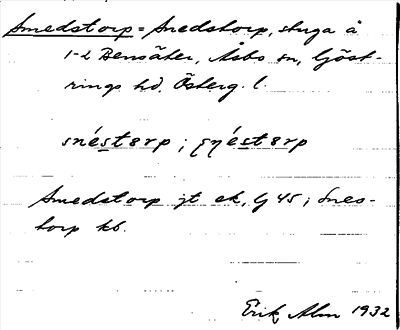 Smedstorp = Snedstorp, stuga å
1-2 Bensäter, Åsbo sn, Göst-
rings hd. Österg. l.
snéstɵrp ; ʂɳéstɵrp
Smedstorp jt ek, G 45 ; Snes-
torp kb.
Erik Alm 1932